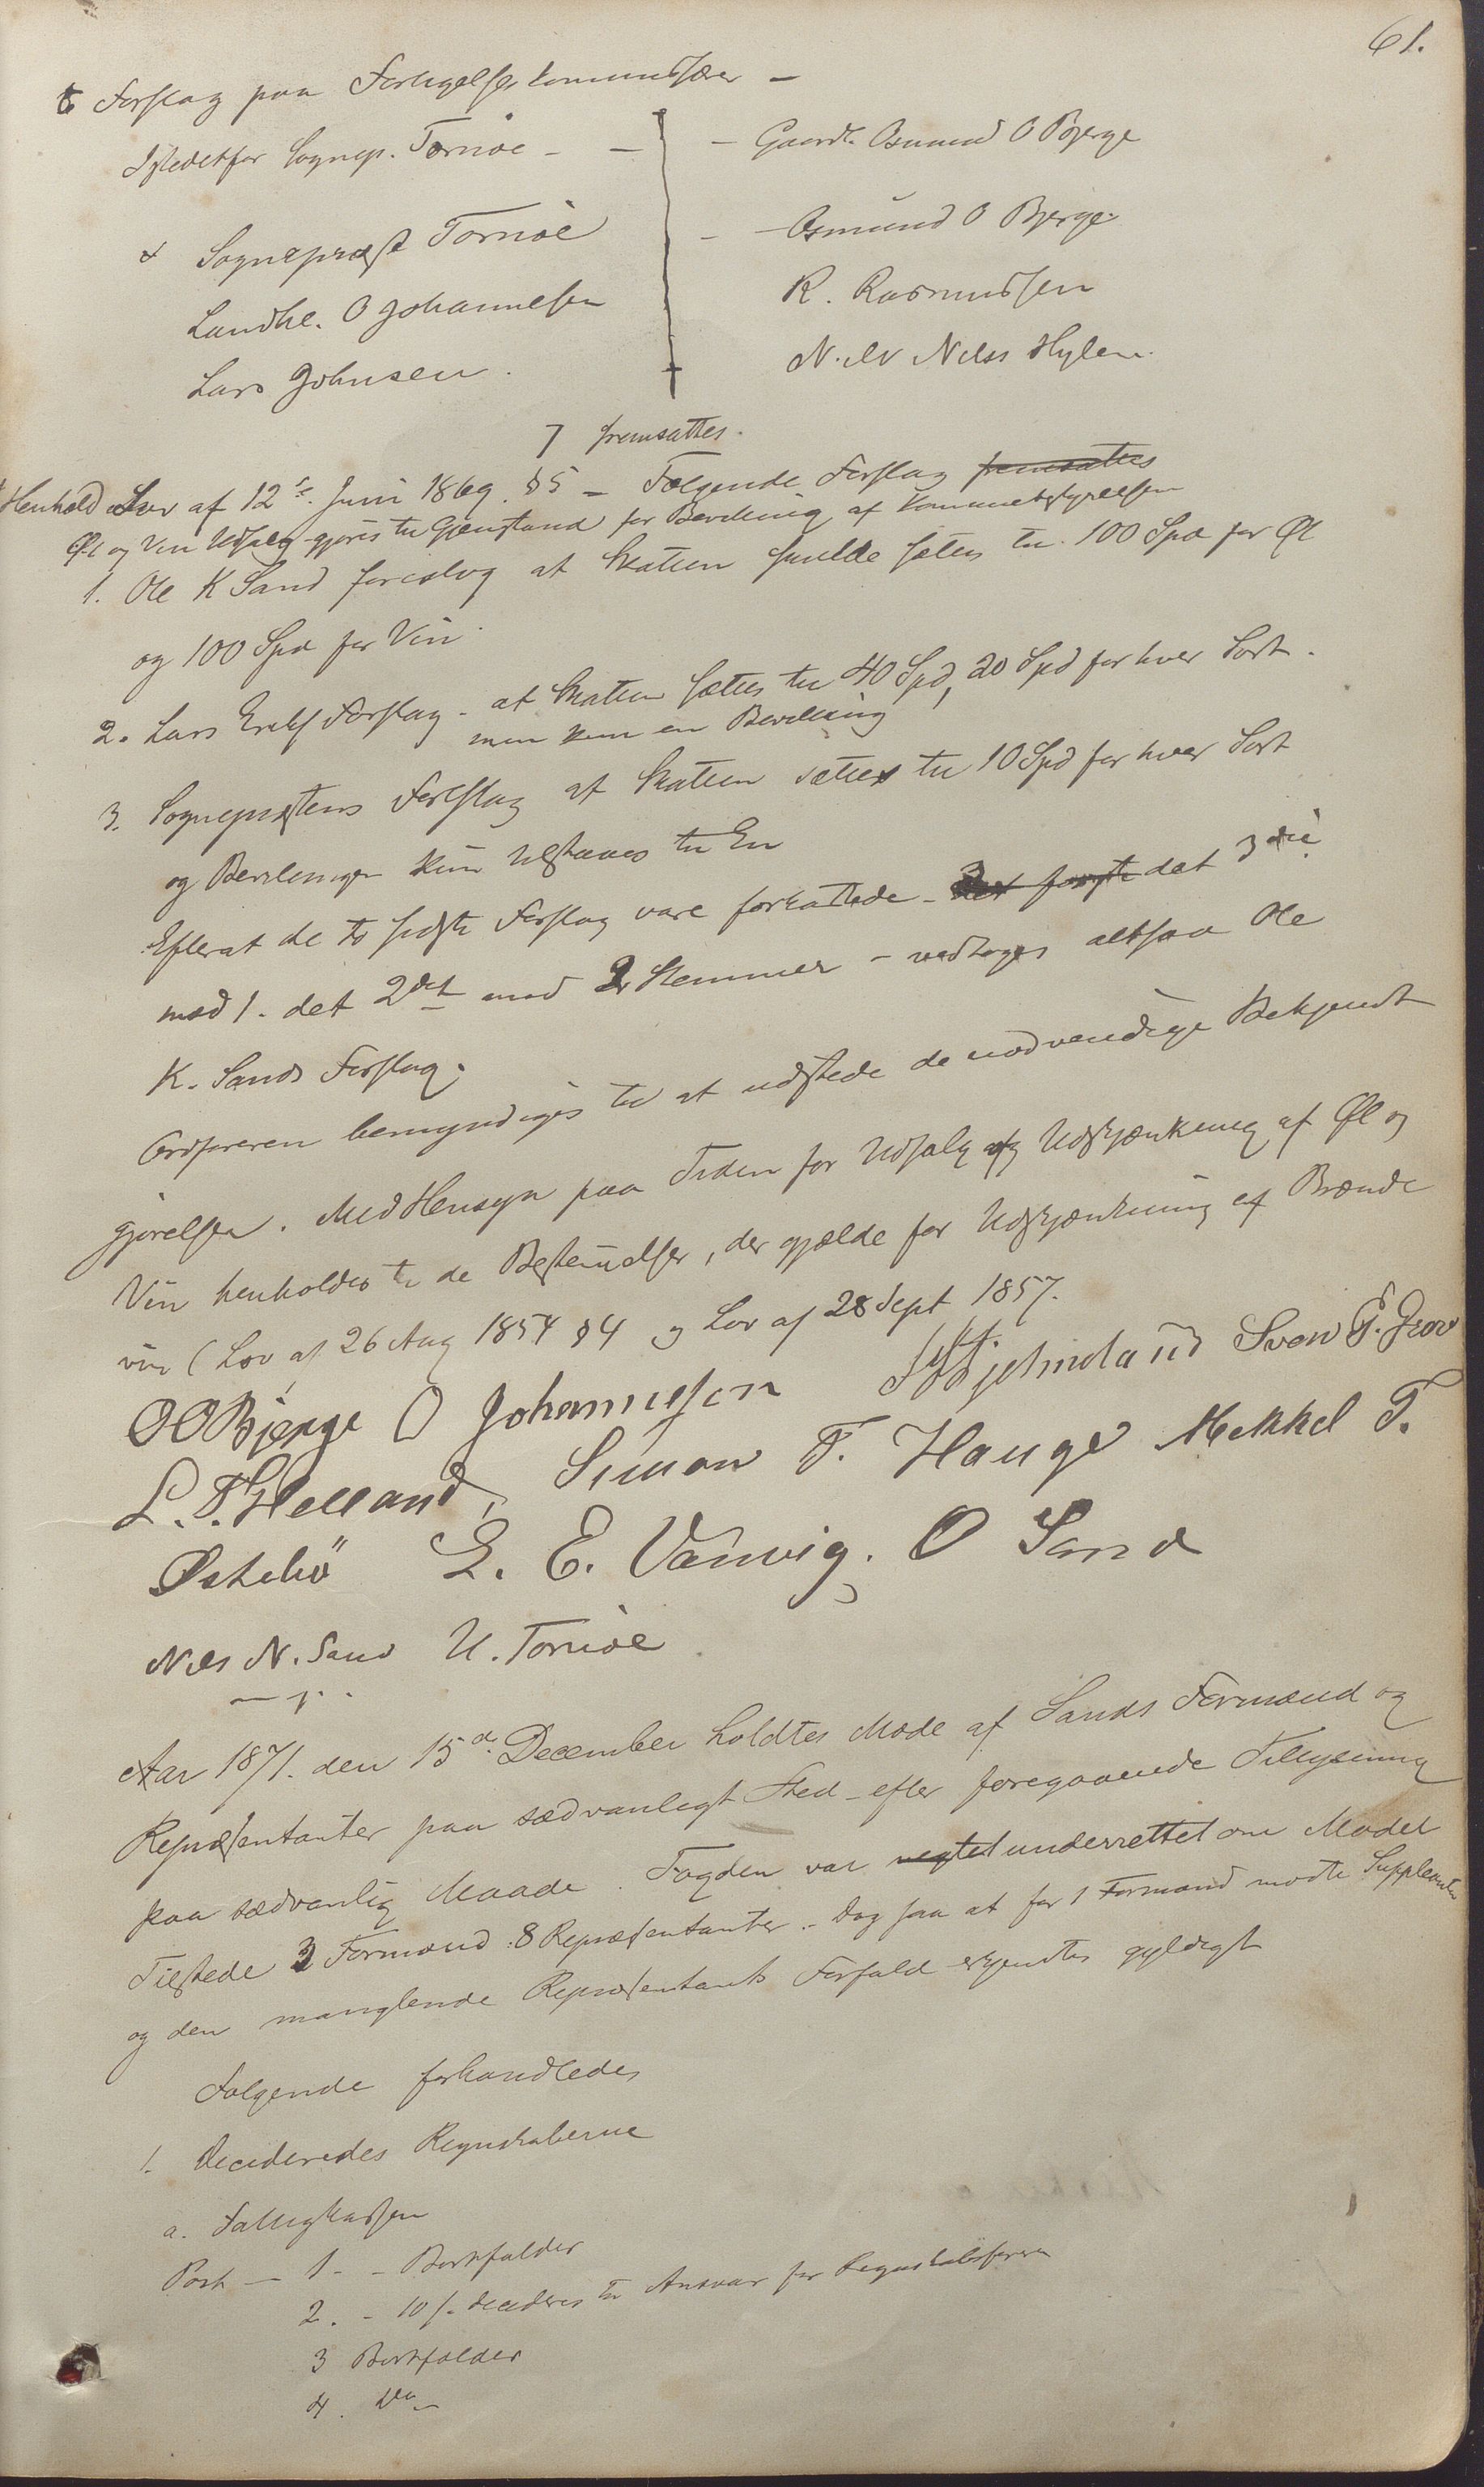 61.
6 Forslag paa Forligelseskommissær —
Istedetfor Sognep. Tornöe — — — Gaardb. Osmund O Bjerge
Sognepræst Tornöe — Osmund O Bjerge
Landhl. O Johannesen R. Rasmussen
Lars Johnsen. Nils Hylen.
7 fremsattes.
Henhold Lov af 12te Juni 1869 §5 — Følgende Forslag fremsattes
Øl og Vin Udsalg gjøres til Gjenstand for Bevilling af Kommunebestyrelsen
1. Ole K Sand foreslog at Skatten skulde sættes til 100 Spd for Øl
og 100 Spd for Vin.
2. Lars Eriks Forslag — at Skatten sættes til 40 Spd, 20 Spd for hver Sort.
men kun en Bevilling
3. Sognepræstens Forslag at Skatten sættes til 10 Spd for hver Sort
og Bevilingen kun tilstaaes til En
Efterat de to sidste Forslag vare forkastede — det første det 3die
med 1. det 2det med 2 Stemmer — vedtoges altsaa Ole
K. Sands Forslag.
Ordføreren bemyndiges til at udstede de nødvendige Bekjendt
gjørelser. Med Hensyn paa Tiden for Udsalg og Udskjænkning af Øl og
Vin henholdes til de Bestemelser, der gjælde for Udskjænkning af Brænde
vin (Lov af 26 Aug 1854 §4 og Lov af 28 Sept 1857.
OO Bjerge O Johannesen Hjelmeland Sven T.
L. T. Helland, Simon T. Hauge Mekkel T.
Østebö L. E. Vanvig. O Sand
Nils N. Sand U. Tornöe
Aar 1871. den 15de December holdtes Møde af Sands Formænd og
Repræsentanter paa sædvanligt Sted — efter foregaaende Tillysning
paa sædvanlig Maade. Fogden var underrettet om Mødet
Tilstede 3 Formænd 8 Repræsentanter. — Dog saa at for 1 Formand mødte Suppleanten
og den manglende Repræsentants Forfald erkjendtes gyldigt
Følgende forhandledes
1. Decideredes Regnskaberne
a. Fattigkassen
Post — 1 — Bortfalder
2. — 10 s. decideres til Ansvar for Regnskabsføreren
3 Bortfalder
4. Do —